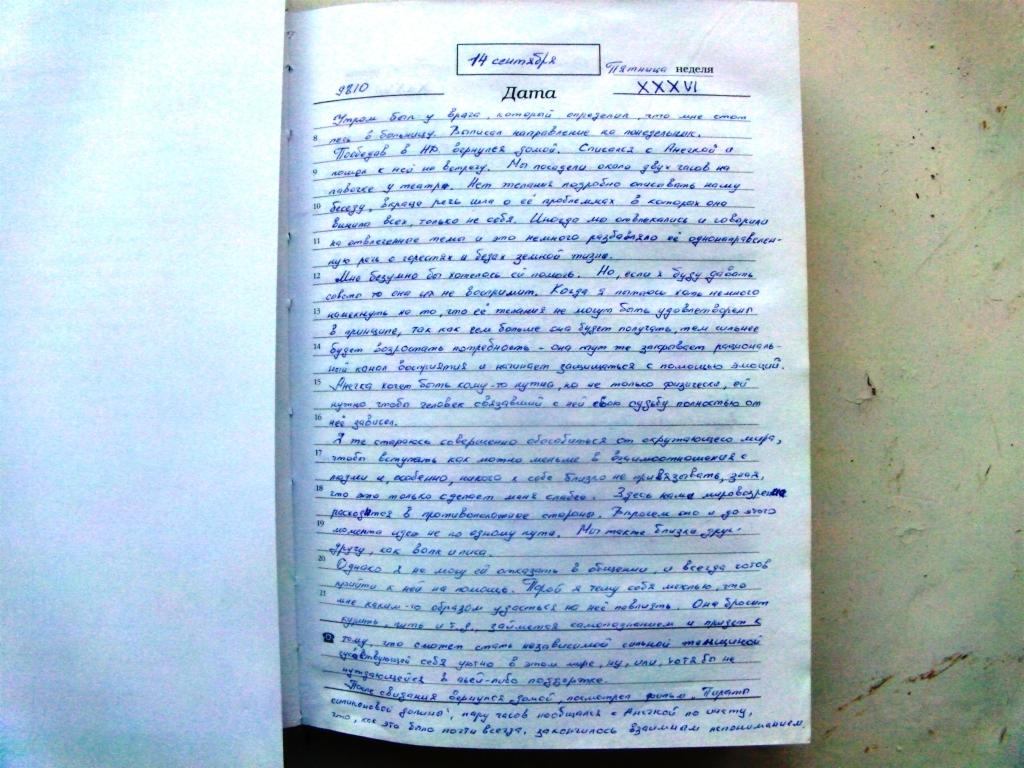 14 сентября
Пятница неделя
9810
XXXVI
Дата
Утром был у врача, который определил, что мне стоит
8 лечь в больницу. Выписал направление на понедельник.
Пообедав в НФ. вернулся домой. Списался с Анечкой и
9 пошел к ней на встречу. Мы посидели около двух часов на
лавочке у театра. Нет желания подробно описывать нашу
10 беседу, вкраце речь шла о её проблеммах в которых она
винила всех, только не себя. Иногда мы отвлекались и говорили
11 на отвлеченные темы и это немного разбавляло её однонаправлен-
ную речь о горестях и бедах земной жизни.
12 Мне безумно бы хотелось ей помочь. Но, если я буду давать
советы то она их не воспримит. Когда я пытаюсь хоть немного
13 намекнуть на то, что её желания не могут быть удовлетворены
в принципе, так как чем больше она будет получать, тем сильнее
14 будет возростать потребность - она тут же закрывает рациональ-
ный канал восприятия и начинает защищаться с помощью эмоций.
15 Анечка хочет быть кому-то нужна, но не только физически, ей
нужно чтобы человек связавший с ней свою судьбу полностью от
16 неё зависел.
Я же стараюсь совершенно обособиться от окружающего мира,
17 чтобы вступать как можно меньше в взаимоотношения с
людми и, особенно, никого к себе близко не привязывать, зная,
18 что это только сделает меня слабее. Здесь наши мировозрения
расходятся в противоположные стороны. Впрочем они и до этого
19 момента идеи не по одному пути. Мы также близки друг
другу, как волк и лиса.
20 Однако я не могу ей отказать в общении, и всегда готов
прийти к ней на помощь. Порой я тешу себя мыслью, что
21 мне каким-то образом удасться на неё повлиять. Она бросит
курить, пить и т.д., займется самопознанием и придет к
тому, что сможет стать независимой сильной женщиной
чувствующей себя уютно в этом мире, ну, или, хотя бы не
нуждающейся в чьей-либо поддержке.
После свидания вернулся домой, посмотрел фильм „Пираты
силиконовой долины", пару часов пообщался с Анечкой по инету,
что, как это было почти всегда, закончилось взаимным непониманием